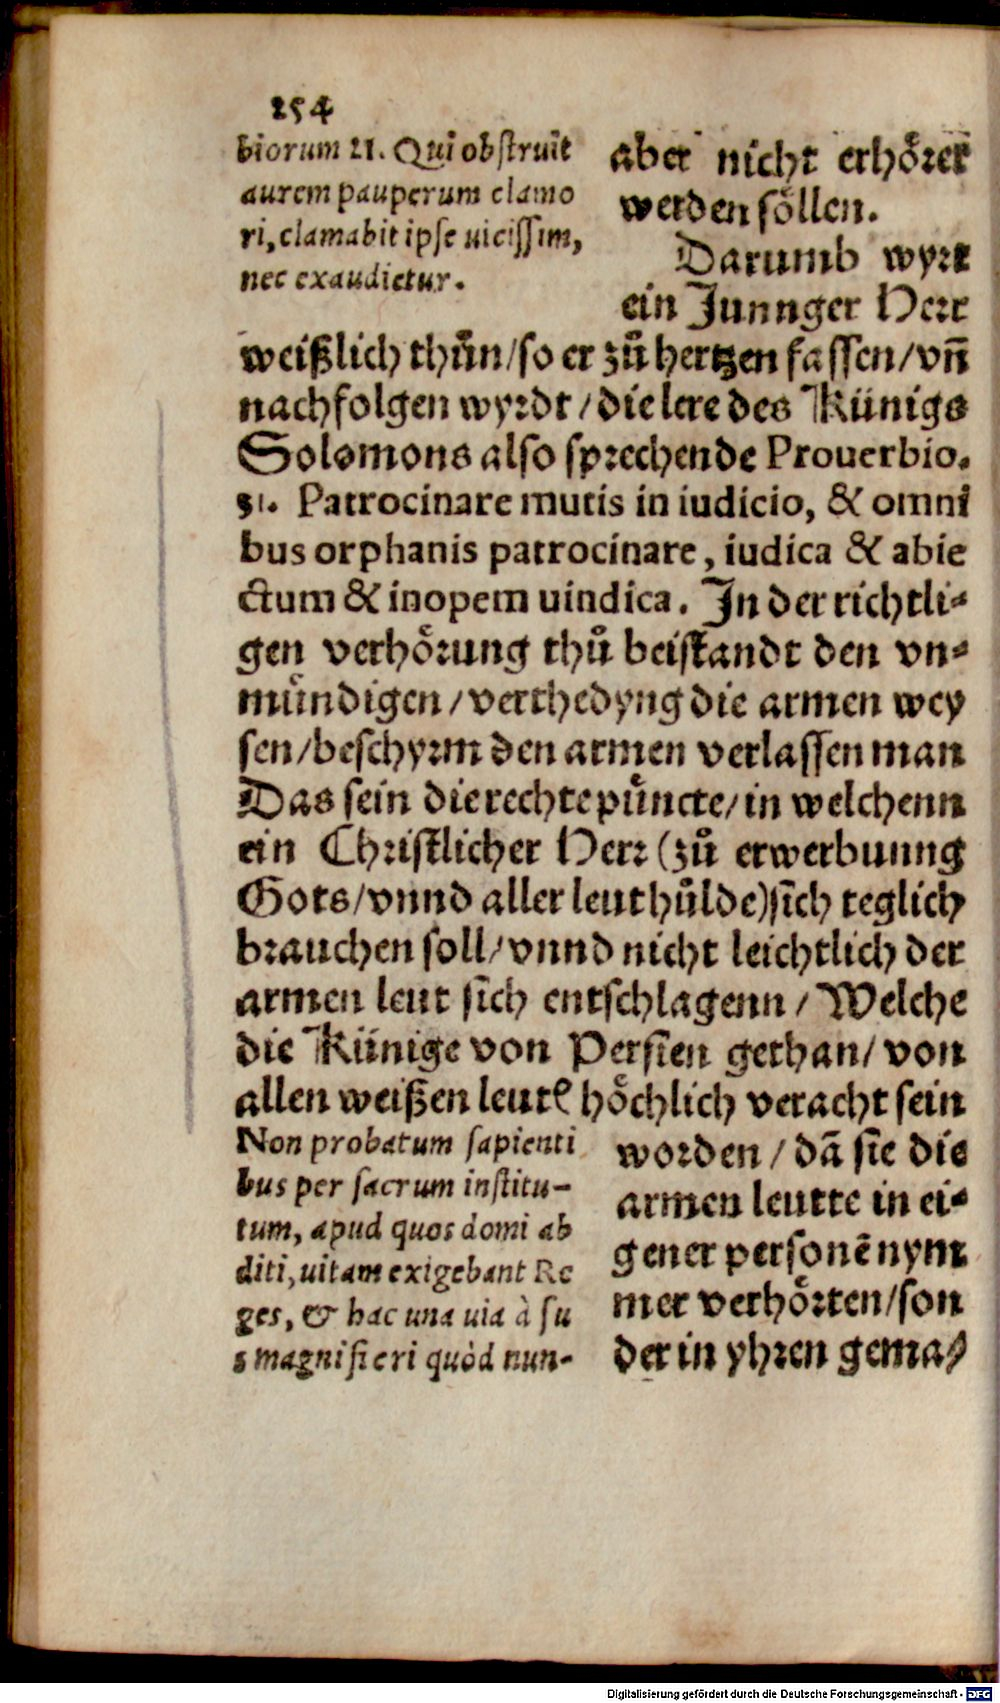 254
biorum 21. Qui obſtruit
aurem pauperum clamo
ri, clamabit ipſe uiciſſim,
nec exaudietur.
aber nicht erhoͤret
werden ſoͤllen.
Darumb wyrt
ein Junnger Herr
weißlich thuͦn/ſo er zuͦ hertzen faſſen/vñ
nachfolgen wyrdt/die lere des Künigs
Solomons alſo ſprechende Prouerbio.
31. Patrocinare mutis in iudicio, & omni
bus orphanis patrocinare, iudica & abie
ctum & inopem uindica. In der richtli⸗
gen verhoͤrung thuͦ beiſtandt den vn⸗
mündigen/verthedyng die armen wey
ſen/beſchyrm den armen verlaſſen man
Das ſein die rechte puͤncte/in welchenn
ein Chriſtlicher Herr (zuͦ erwerbunng
Gots/vnnd aller leut huͤlde)ſich teglich
brauchen ſoll/vnnd nicht leichtlich der
armen leut ſich entſchlagenn/Welche
die Künige von Perſien gethan/von
allen weißen leutẽ hoͤchlich veracht ſein
Non probatum ſapienti
bus per ſacrum inſtitu-
tum, apud quos domi ab
diti, uitam exigebant Re
ges, & hac una uia à ſu
s magnifieri quòd nun-
worden/dã ſie die
armen leutte in ei⸗
gener perſonẽ nym
mer verhoͤrten/ſon
der in yhren gema⸗
Digitalisierung gefördert durch die Deutsche Forschungsgemeinschaft - DFG